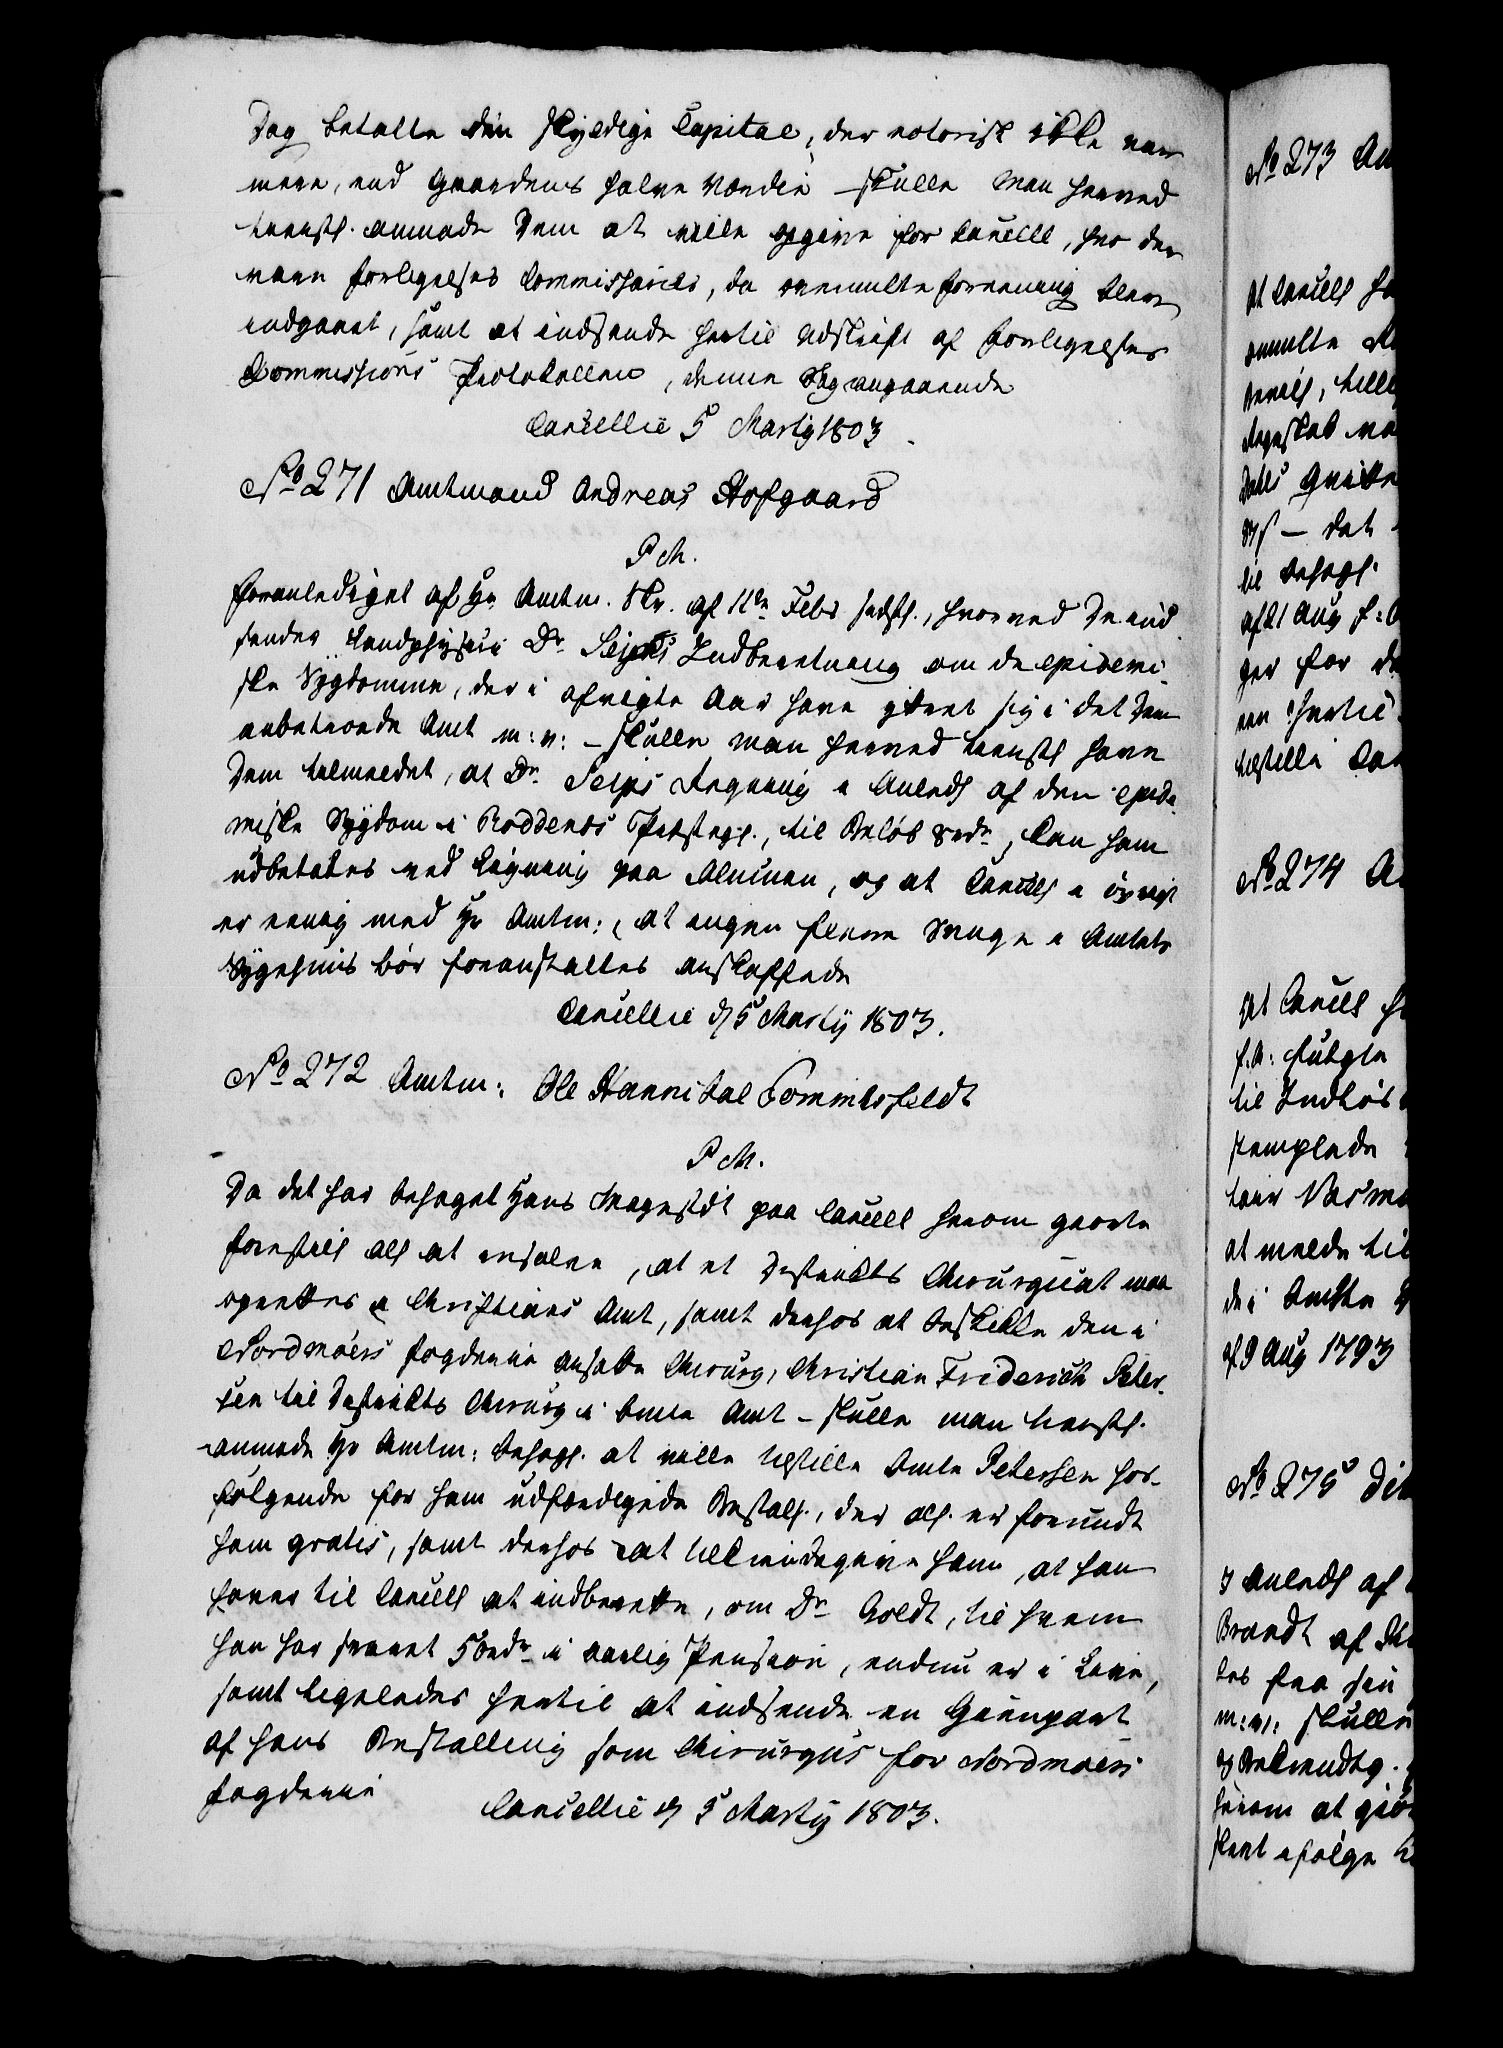 Dag betalte den skyldige Capital, der notorisk ikke var
mere, end Gaardens halve Værdie – skulle man herved
tienstl. anmode Dem at ville opgive for Cancell, hvo der
vare Forligelses Commissairer, da ommeldte Foreening blev
indgaaet, samt at indsende hertil Udskrift af Forligelses
Commissions Protokollen, denne Sag angaaende
Cancellie 5 Martij 1803.
No 271 Amtmand Andreas Hofgaard
P M.
Foranlediget af Hr Amtm. Skr. af 11te Febr sidstl., hvorved De ind
sender Landphysici Dr. Seips Indberetning om de epidemi-
ske Sygdomme, der i afvigte Aar have yttret sig i det Dem
anbetroede Amt m: v: – skulle man herved tienstl have
Dem tilmeldet, at Dr. Seips Regning i Anledn af den epide
miske Sygdom i Røddenes Præstegl., til Beløb 8 rdr, kan ham
udbetales ved Ligning paa Almuen, og at Cancell i øvrigt
er eenig med Hr Amtm:, at ingen fleere Senge i Amtets
Sygehuus bør foranstaltes anskaffede
Cancellie d 5 Martij 1803.
No 272 Amtm: Ole Hannibal Sommerfeldt
P M.
Da det har behaget Hans Majestdt paa Cancell herom giorte
Forestill all at resolve, at et Districkts Chirurgicat maa
oprettes i Christians Amt, samt derhos at beskikke den i
Nordmøers Fogderie ansatte Chirurg, Christian Friderich Peter-
sen til Districkts Chirurg i bmte Amt – skulle man tienstl.
anmode Hr Amtm: behagl. at ville tilstille bmte Petersen hos-
følgende for ham udfærdigede Bestall., der all. er forundt
ham gratis, samt derhos at tilkiendegive ham, at han
haver til Cancell at indberette, om Dr Goldt, til hvem
han har svaret 50 rdr i aarlig Pension, endnu er i Live,
samt ligeledes hertil at indsende en Gienpart
af hans Bestalling som Chirurgus for Nordmøers
Fogderie
Cancellie d 5 Martij 1803.
No 273
at Cancell
ommelte
til behagl.
af 21 Aug
ger for
hertil
tilstille
No 274
At Cancell
til Indkiøb
stemplede
at melde til
de i bemte
af 9 Aug 1793
No 275
I Anledn af
Brandt af
paa sin
m: v: skulle
herom at giør